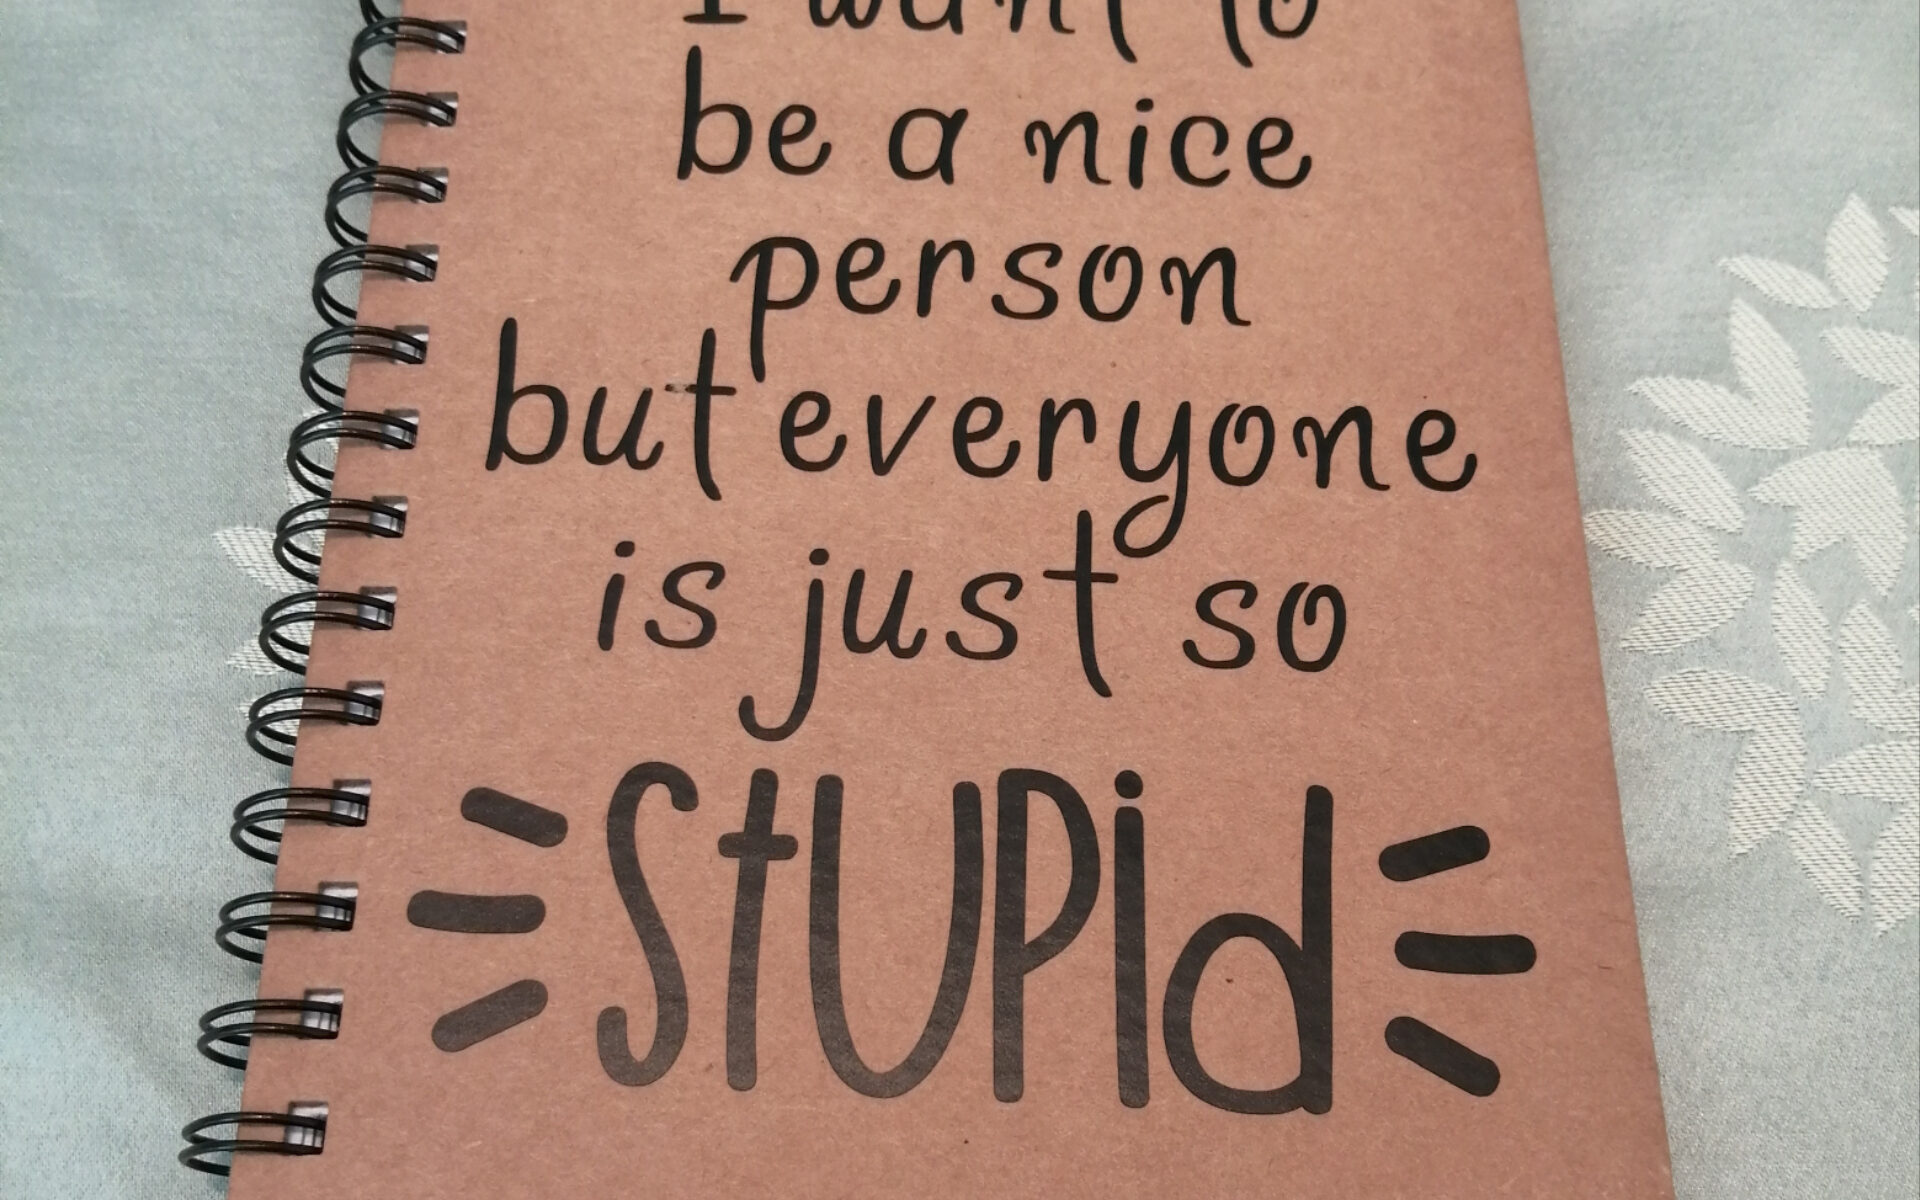 I want to
be a nice
person
but everyone
is just so
StUPid